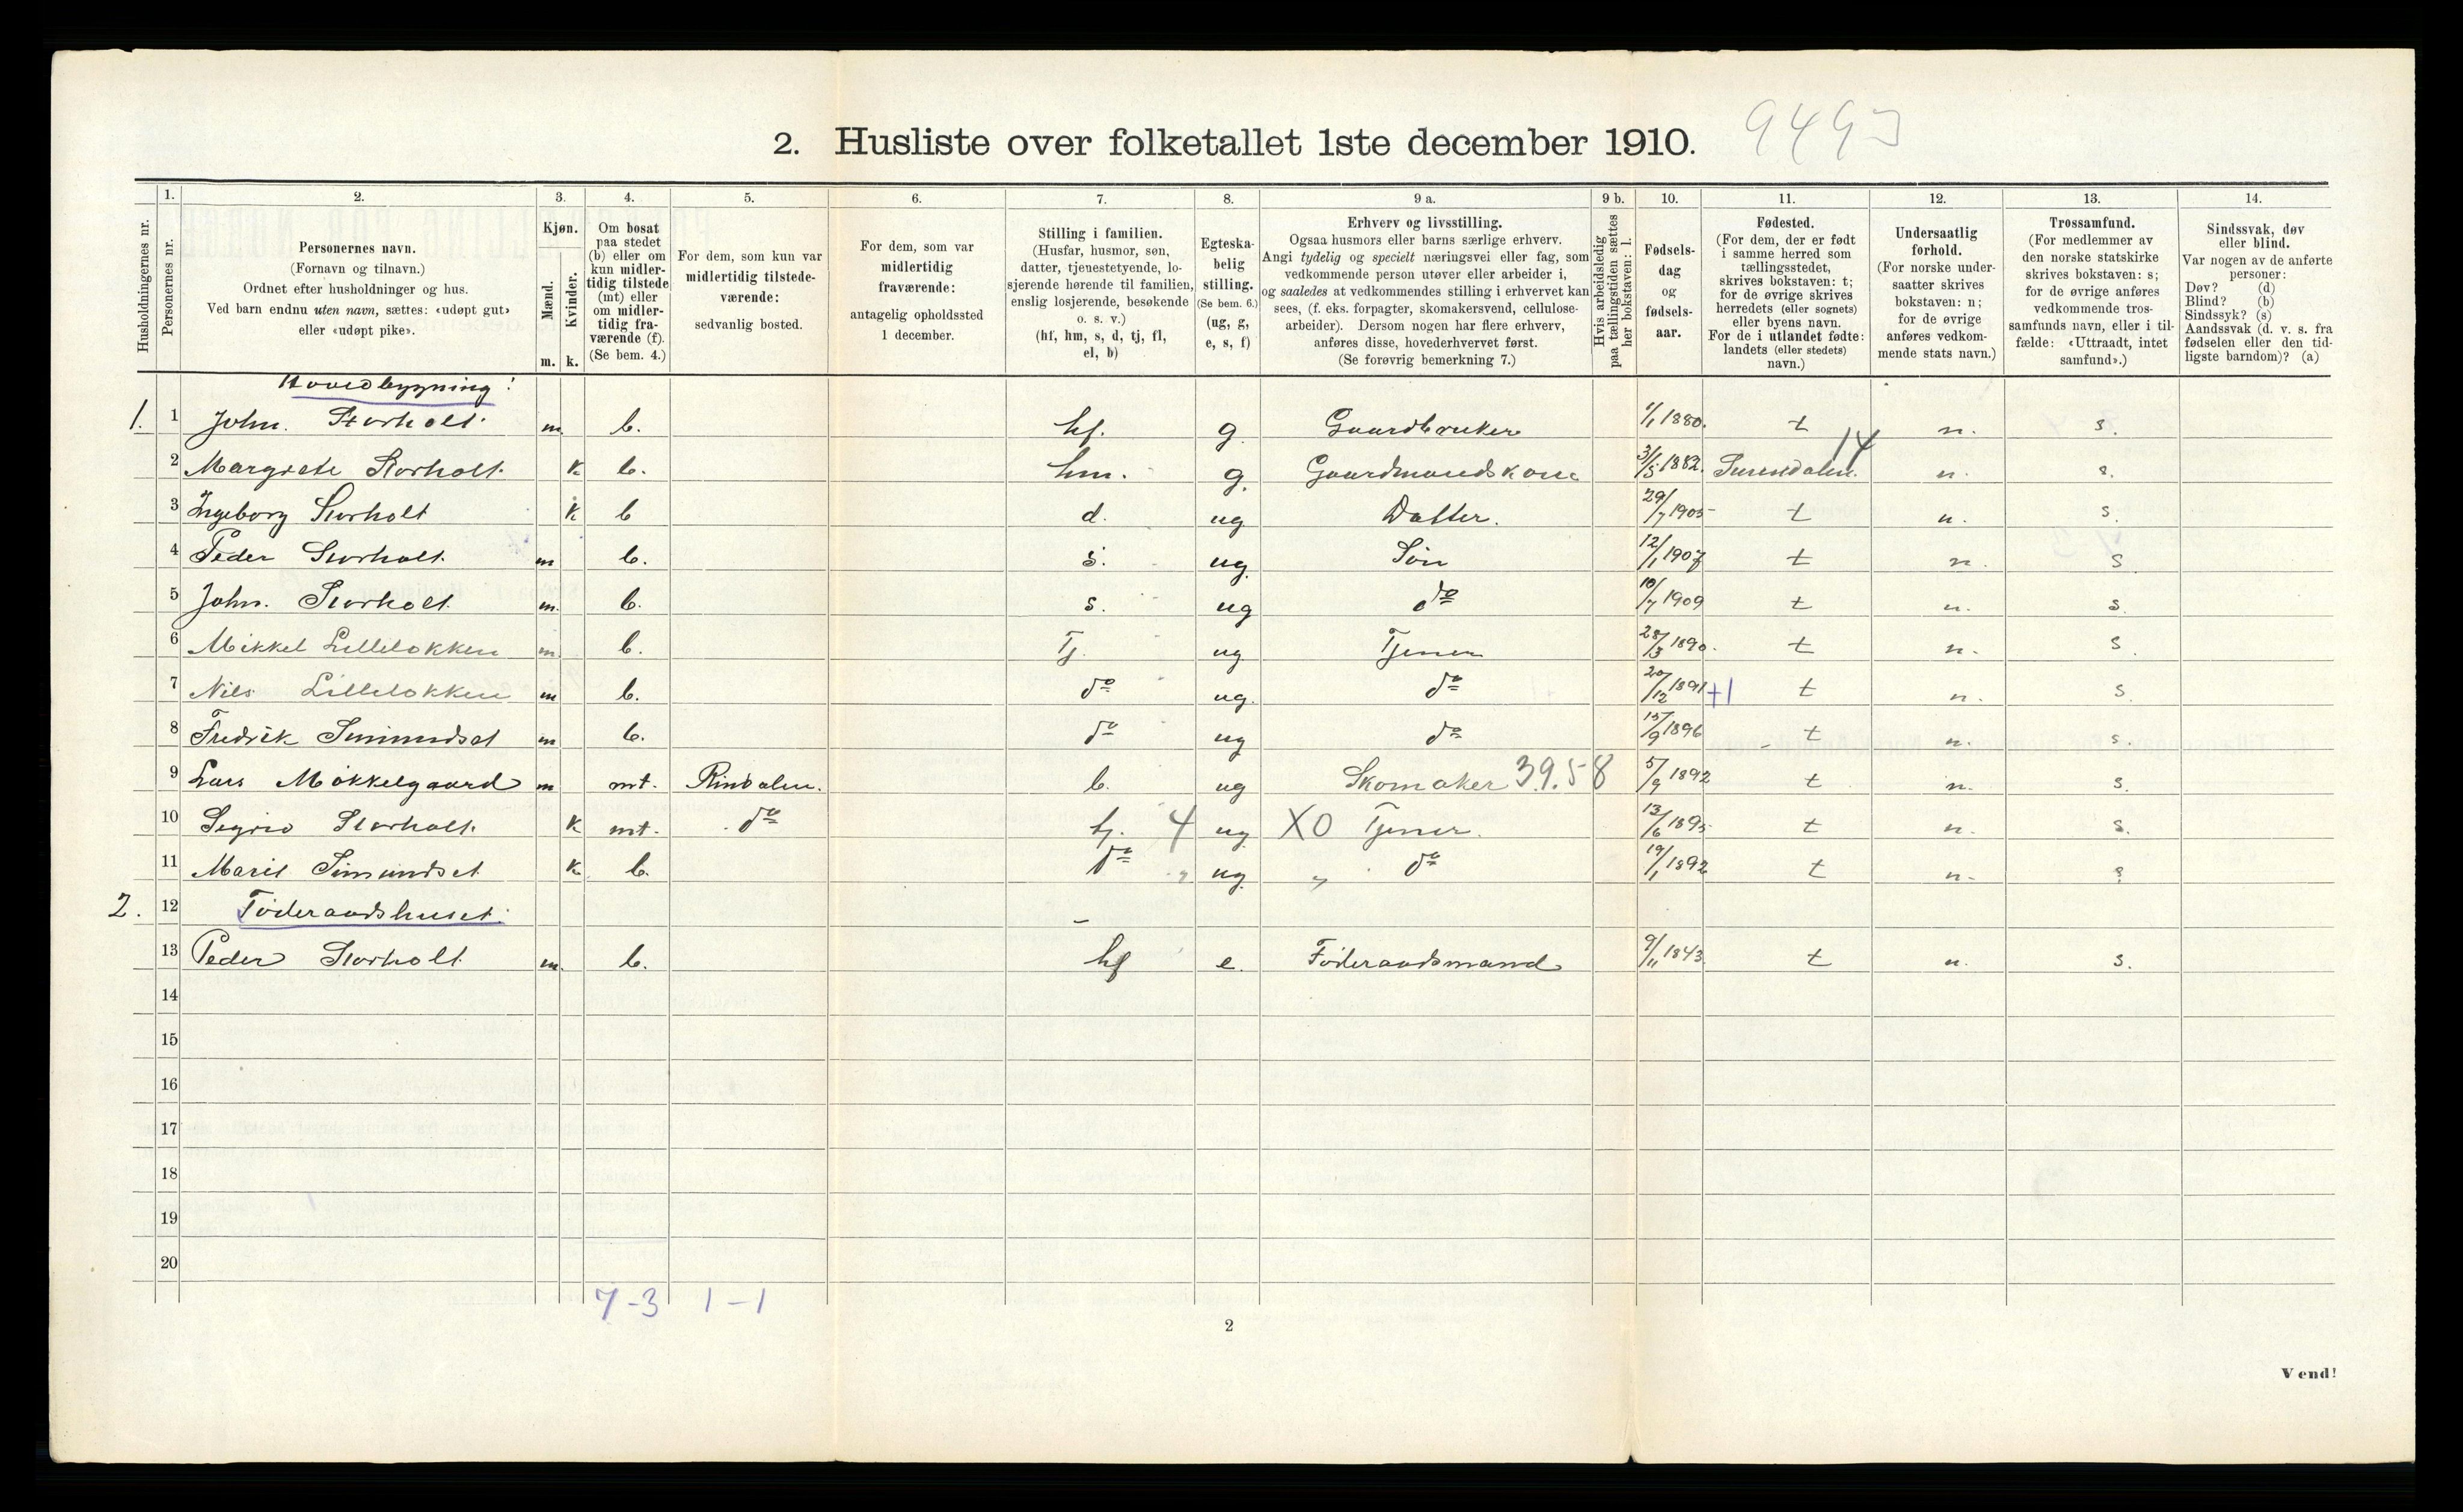 2. Husliste over folketallet 1ste december 1910. 9493
Husholdningernes nr.
1. Personernes nr.
2. Personernes navn. (Fornavn og tilnavn.) Ordnet efter husholdninger og hus. Ved barn endnu uten navn, sættes: «udøpt gut» eller «udøpt pike».
3. Kjøn. Mænd. m. Kvinder. k.
4. Om bosat paa stedet (b) eller om kun midlertidig tilstede (mt) eller om midlertidig fraværende (f). (Se bem. 4.)
5. For dem, som kun var midlertidig tilstedeværende: sedvanlig bosted.
6. For dem, som var midlertidig fraværende: antagelig opholdssted 1 december.
7. Stilling i familien. (Husfar, husmor, søn, datter, tjenestetyende, losjerende hørende til familien, enslig losjerende, besøkende o. s. v.) (hf, hm, s, d, tj, fl, el, b)
8. Egteskabelig stilling. (Se bem. 6.) (ug, g, e, s, f)
9 a. Erhverv og livsstilling. Ogsaa husmors eller barns særlige erhverv. Angi tydelig og specielt næringsvei eller fag, som vedkommende person utøver eller arbeider i, og saaledes at vedkommendes stilling i erhvervet kan sees, (f. eks. forpagter, skomakersvend, cellulosearbeider). Dersom nogen har flere erhverv, anføres disse, hovederhvervet først. (Se forøvrig bemerkning 7.)
9 b. Hvis arbeidsledig paa tællingstiden sættes her bokstaven: l.
10. Fødselsdag og fødselsaar.
11. Fødested. (For dem, der er født i samme herred som tællingsstedet, skrives bokstaven: t; for de øvrige skrives herredets (eller sognets) eller byens navn. For de i utlandet fødte: landets (eller stedets) navn.)
12. Undersaatlig forhold. (For norske undersaatter skrives bokstaven: n; for de øvrige anføres vedkommende stats navn.)
13. Trossamfund. (For medlemmer av den norske statskirke skrives bokstaven: s; for de øvrige anføres vedkommende trossamfunds navn, eller i tilfælde: «Uttraadt, intet samfund».)
14. Sindssvak, døv eller blind. Var nogen av de anførte personer: Døv? (d) Blind? (b) Sindssyk? (s) Aandssvak (d. v. s. fra fødselen eller den tidligste barndom)? (a)
Hovedbygning:
1. 1 John. Storholt. m. b. hf. g. Gaardbruker 1/1 1880. t n. s.
2 Margrete Storholt. k b. hm. g. Gaardmandskone 3/5 1882. Surendalen. 14 n. s.
3 Ingeborg Storholt k b d. ug Datter. 29/7 1905 t n. s.
4 Peder Storholt. m b. s. ug. Søn 12/1 1907 t n. s
5 John. Storholt. m. b. s. ug do 10/7 1909 t n. s.
6 Mikkel Lilleløkken m b. Tj. ug Tjener 28/3 1890. t n. s.
7 Nils Lilleløkken m b. do ug. do 20/12 1891 +1 t n. s.
8 Fredrik Simundset m b. do ug do 15/9 1896 t n. s.
9 Lars Møkkelgaard m mt. Rindalen. b. ug Skomaker 39.58 5/9 1892 t n. s.
10 Sigrid Storholt. k mt. do tj. 4 ug XO Tjener. 13/6 1895 t n. s.
11 Marit Simundset k. b. do „ ug. „ do 19/1 1892 t n. s
2. 12 Føderaadshuset: –
13 Peder Storholt. m. b. hf e. Føderaadsmand 9/11 1843 t n. s.
14
15
16
17
18
19
20
7-3 1-1
2
Vend!